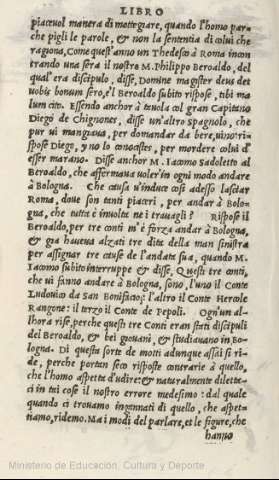 LIBRO
piaceuol manera di motteggiare, quando l'homo para
che pigli le parole, & non la sententia di colui che
ragiona, Come quest'anno un Thedesco à Roma incon
trando una sera il nostro M. Philippo Beroaldo, del
qual'era discipulo, disse, Domine magister deus det
uobis bonum sero, e'l Beroaldo subito rispose, tibi ma
lum cito. Essendo anchor à tauola col gran Capitano
Diego de Chignones, disse un'altro spagnolo, che
pur ui mangiaua, per domandar da bere, uino: ri
spose Diego, y no lo conocestes, per mordere colui d'
esser marano. Disse anchor M. Iacomo Sadoletto al
Beroaldo, che affermaua uoler'in ogni modo andare
à Bologna. Che causa u'induce così adesso lasciar
Roma, doue son tanti piaceri, per andar à Bolo-
gna, che tutta è inuolta ne i trauagli? Rispose il
Beroaldo, per tre conti m'è forza andar à Bologna,
& gia haueua alzati tre dita della man sinistra
per assignar tre cause de l'andata sua, quando M.
Iacomo subito interruppe & disse, Questi tre conti,
che ui fanno andare à Bologna, sono, l'uno il Conte
Ludouico da San Bonifacio: l'altro il Conte Hercole
Rangone: il terzo il Conte de Pepoli. Ogn'un al-
lhora rise, perche questi tre Conti eran stati discipuli
del Beroaldo, & bei giouani, & studiauano in Bo-
logna. Di questa sorte de motti adunque assai si ri-
de, perche portan seco risposte contrarie à quello,
che l'homo aspetta d'udire: & naturalmente diletta-
ci in tai cose il nostro errore medesimo: dal quale
quando ci trouamo ingannati di quello, che aspet-
tiamo, ridemo. Ma i modi del parlare, et le figure, che
hanno
Ministerio de Educación, Cultura y Deporte